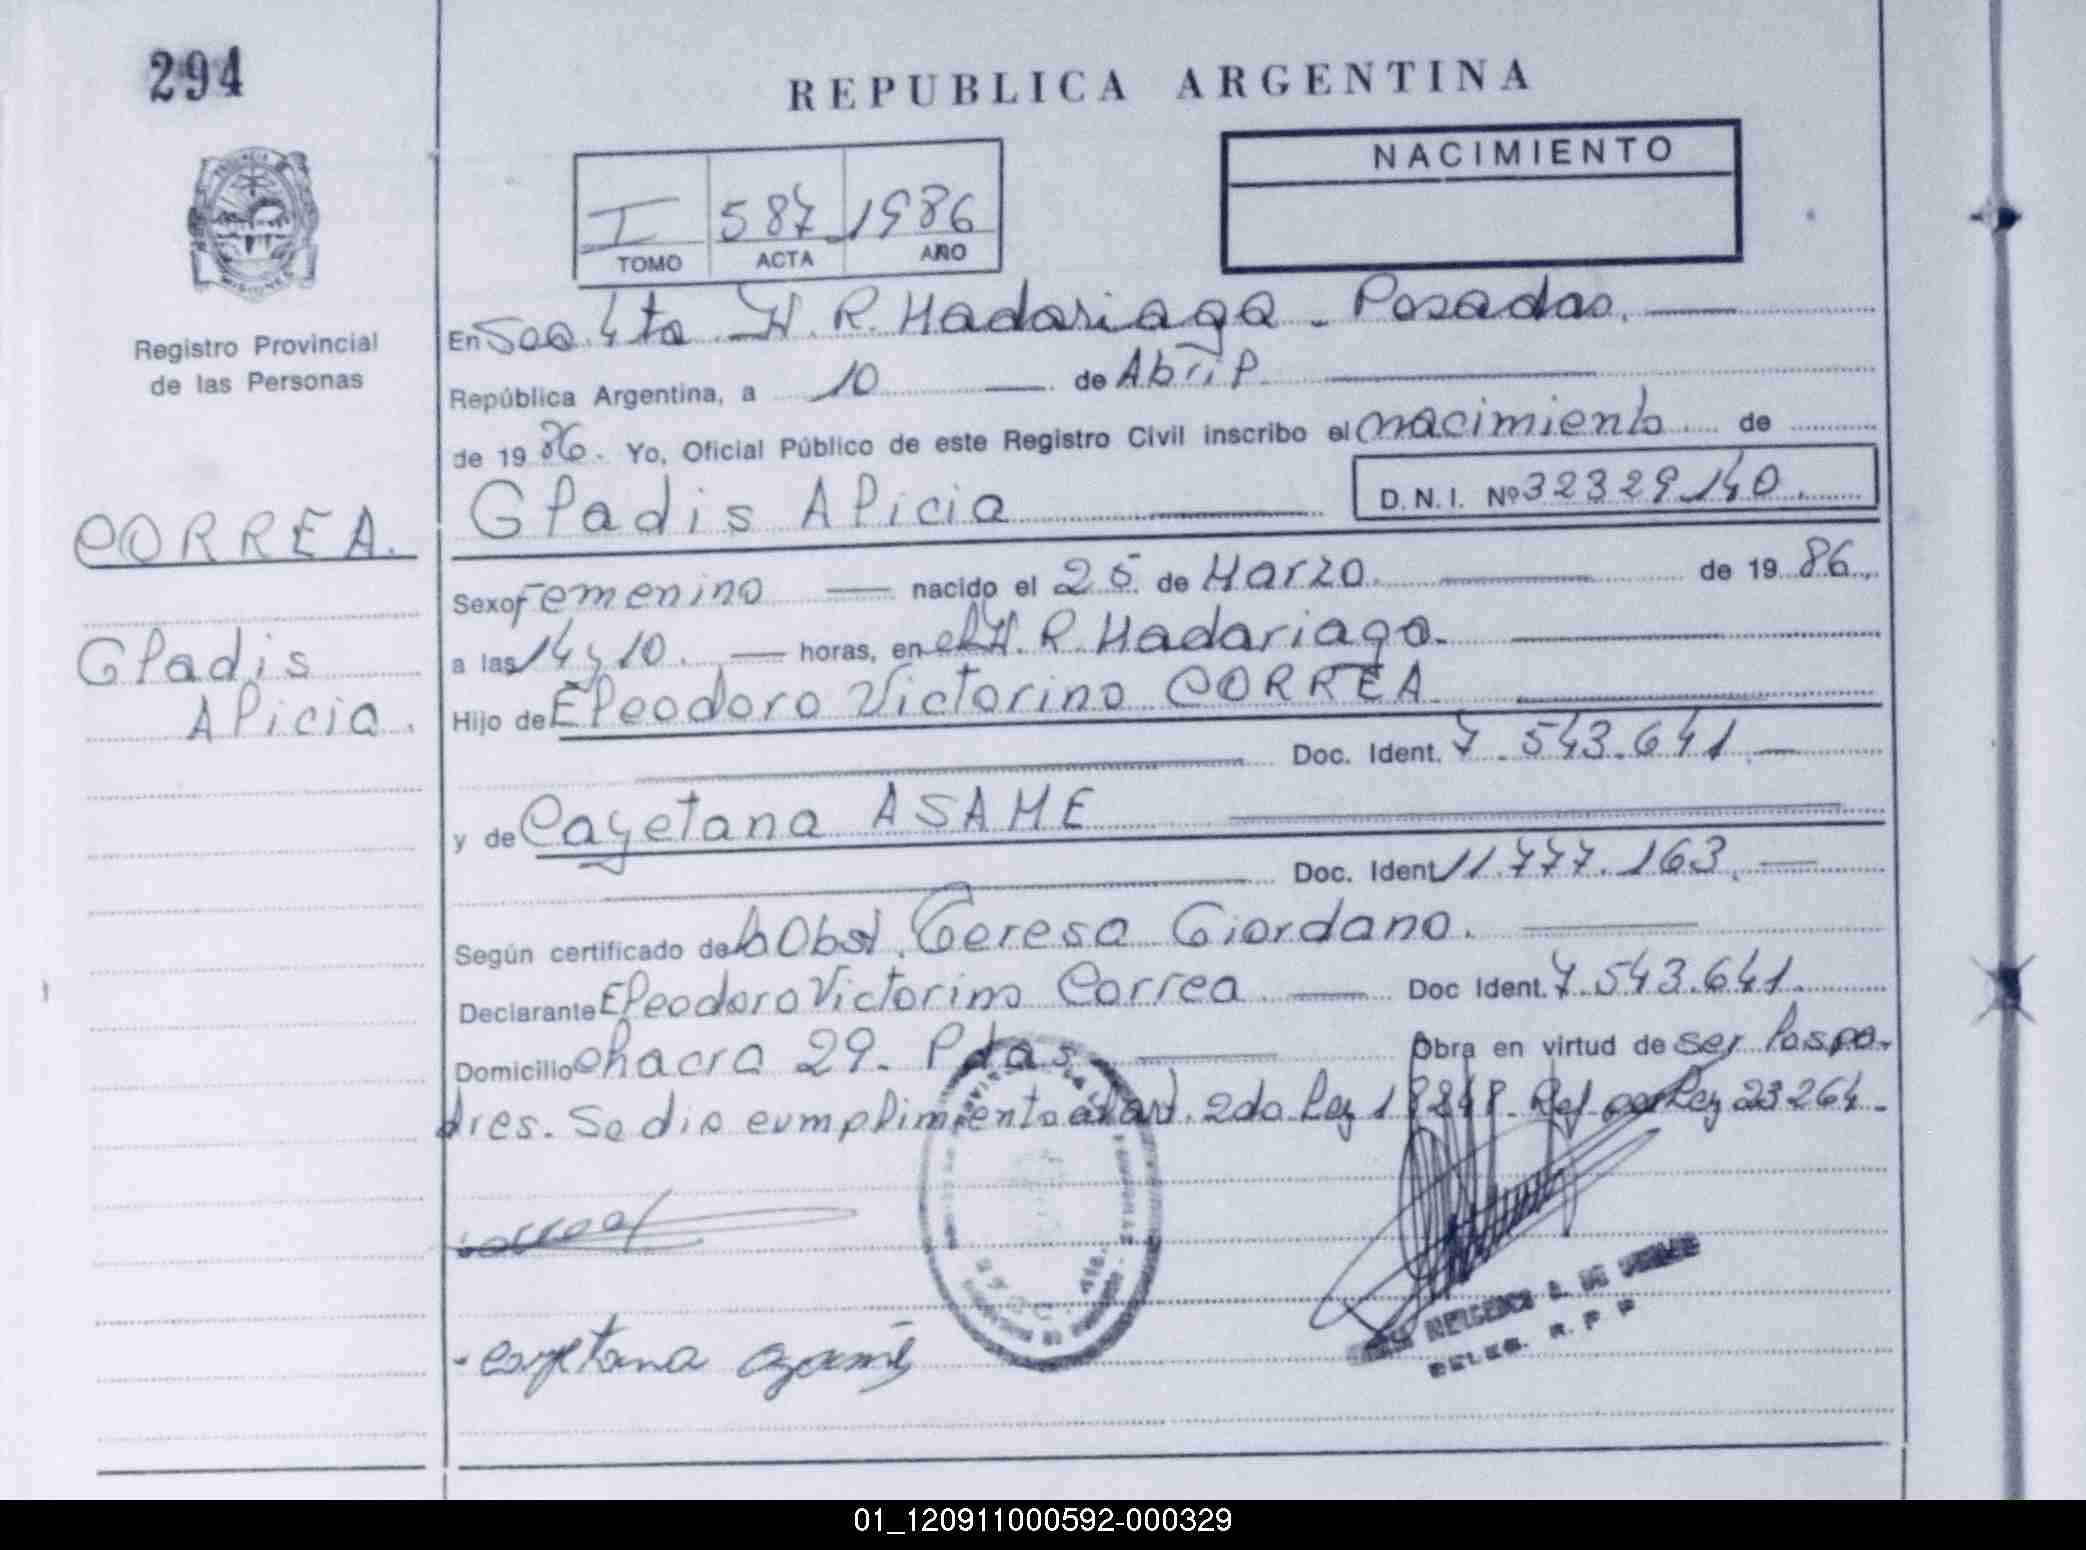 294
REPUBLICA ARGENTINA
NACIMIENTO
I 587 1986
TOMO ACTA AÑO
Registro Provincial
de las Personas
En Secc. 4ta H. R. Madariaga - Posadas.
República Argentina, a 10 de Abril
de 1986. Yo, Oficial Público de este Registro Civil inscribo el nacimiento de
Gladis Alicia D.N.I. Nº 32329140.
CORREA.
Gladis
Alicia.
Sexo Femenino nacido el 25 de Marzo de 1986.
a las 14 y 10. horas, en el H. R. Madariaga.
Hijo de Eleodoro Victorino CORREA
Doc. Ident. 7.543.641
y de Cayetana ASAME
Doc. Ident 11.777.163.
Según certificado de la Obst. Teresa Giordano.
Declarante Eleodoro Victorino Correa Doc Ident. 7.543.641.
Domicilio Chacra 29. Pdas. Obra en virtud de ser los pa-
dres. Se dio cumplimiento al art. 2do Ley 18248. Ref por Ley 23264.
Correa
- Cayetana Azamé
DELEG. R. P. P
01_120911000592-000329